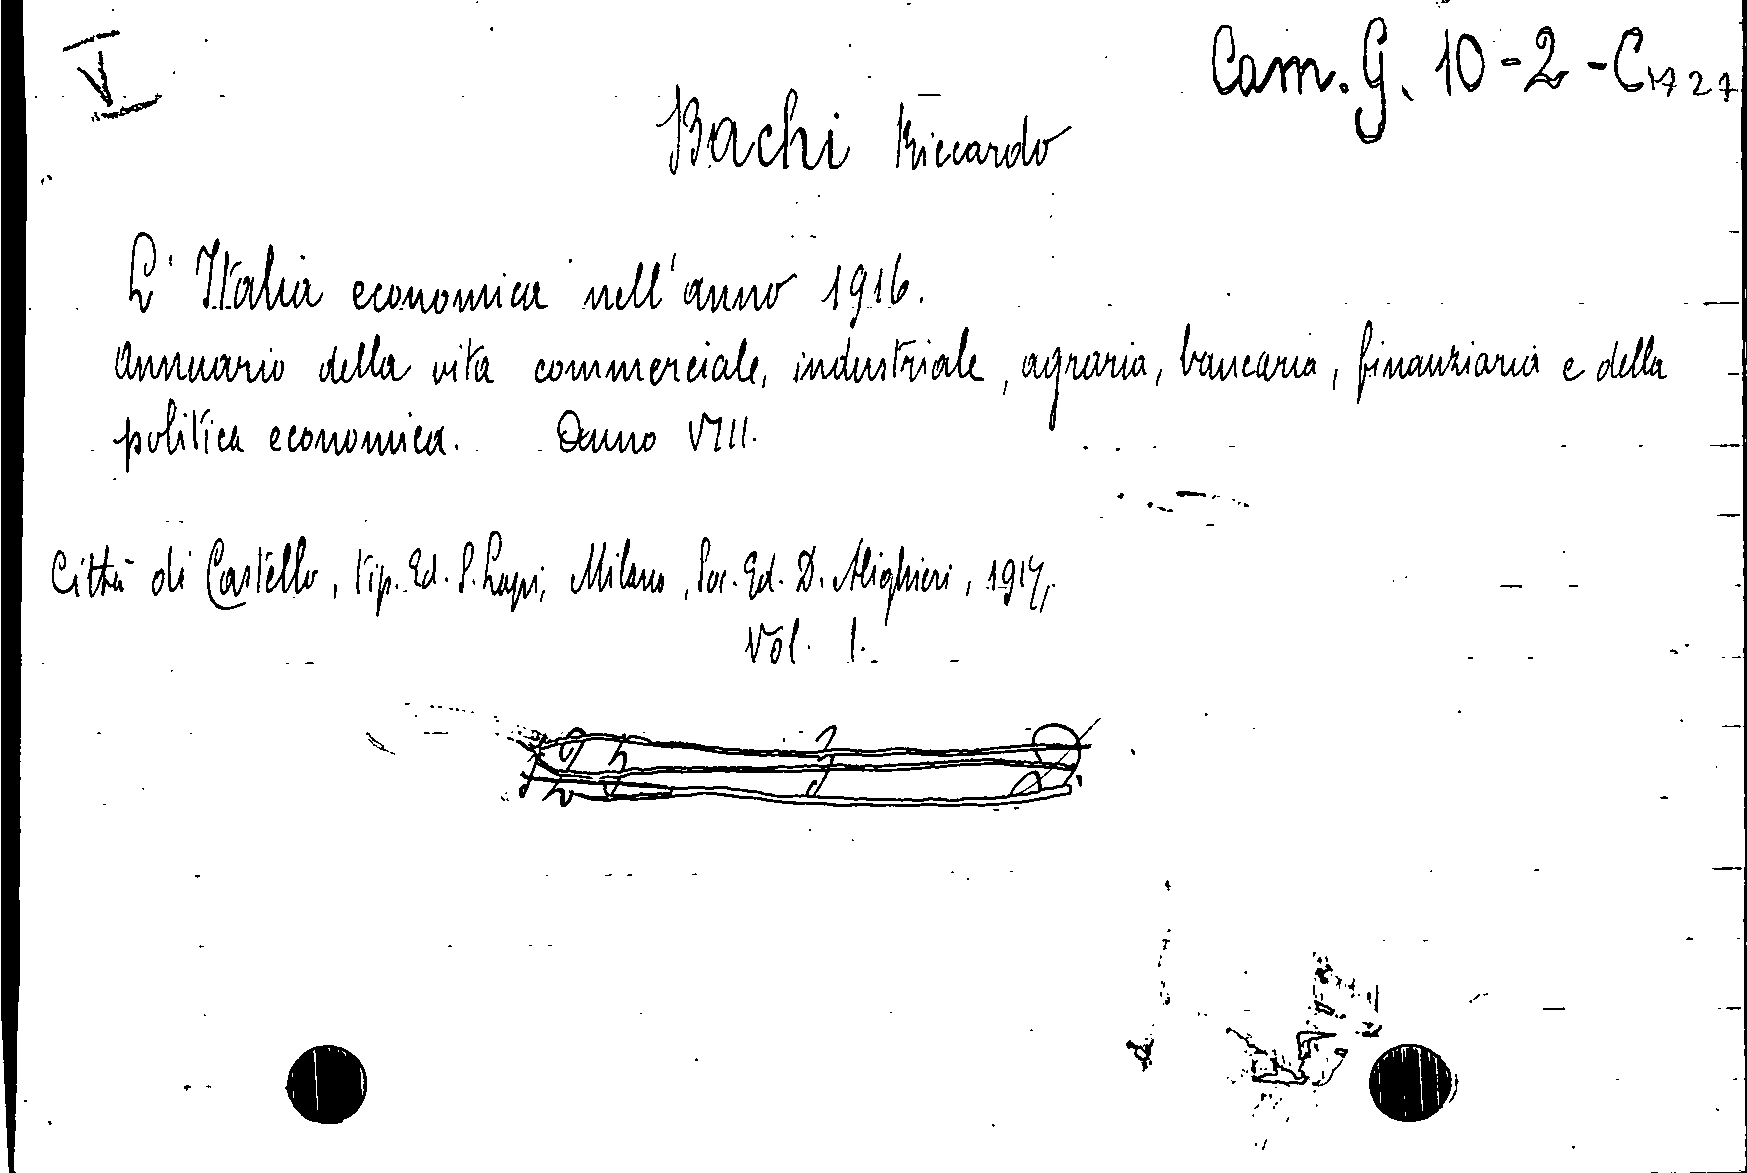 V
Cam. G. 10-2-C1727
Bachi Riccardo
L'Italia economica nell'anno 1916.
Annuario della vita commerciale, industriale, agraria, bancaria, finanziaria e della
politica economica. Anno VIII.
Città di Castello, Tip. Ed. S. Lapi, Milano, Soc. Ed. D. Alighieri, 1917,
Vol. 1.